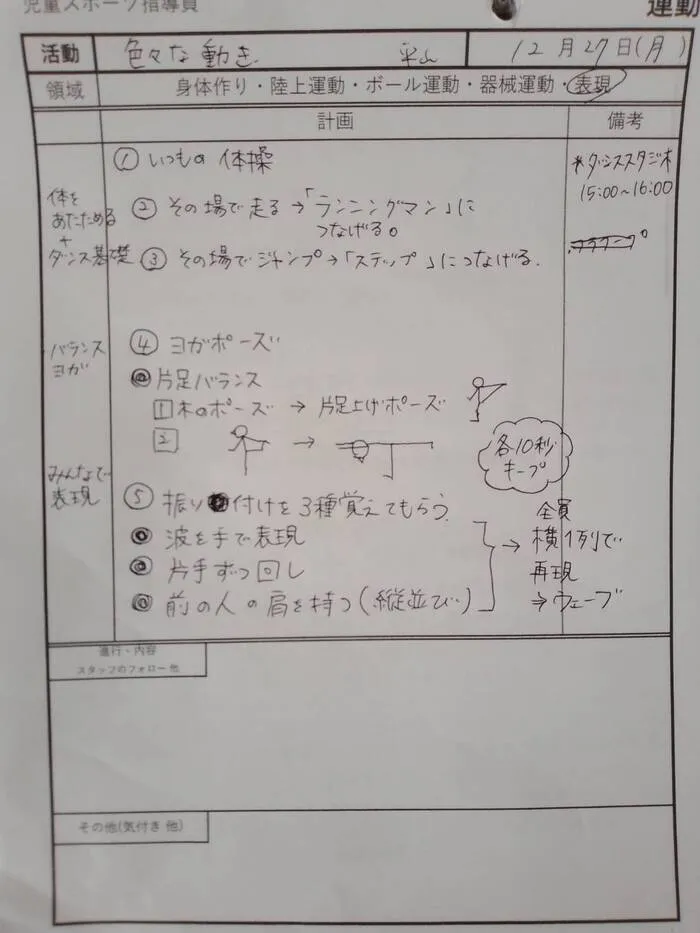 児童スポーツ指導員
運動
活動 色々な動き 平山 12月27日(月)
領域 身体作り・陸上運動・ボール運動・器械運動・表現
計画 備考
① いつもの 体操
*ダンススタジオ
15:00~16:00
体を
あたためる
+
ダンス基礎
② その場で走る→「ランニングマン」に
つなげる。
③ その場でジャンプ→「ステップ」につなげる.
バランス
ヨガ
④ ヨガポーズ
◎片足バランス
1 木のポーズ → 片足上げポーズ
2 →
各10秒
キープ
みんなで
表現
⑤ 振り付けを3種覚えてもらう.
◎ 波を手で表現
◎ 片手ずつ回し
◎ 前の人の肩を持つ(縦並び)
→ 全員
横1列で
再現
⇒ウェーブ
進行・内容
スタッフのフォロー 他
その他(気付き 他)